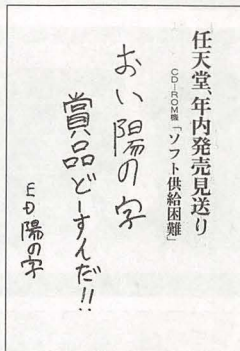 任天堂、年内発売見送り
CD-ROM機「ソフト供給困難」
おい陽の字
賞品どーすんだ!!
ED陽の字